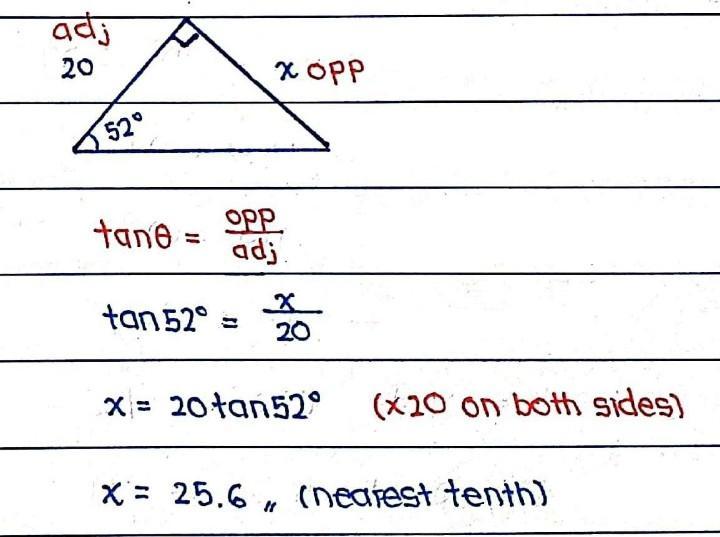 adj
20
x opp
52°
tanθ = opp/adj
tan52° = x/20
x = 20tan52° (x20 on both sides)
x = 25.6 〃 (nearest tenth)